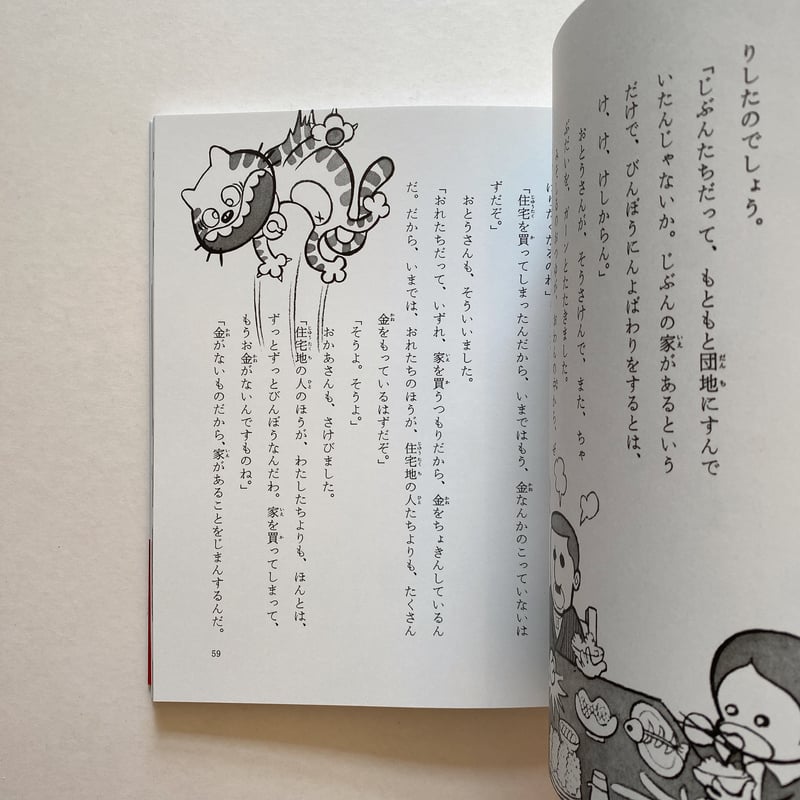 りしたのでしょう。
「じぶんたちだって、もともと団地にすんで
いたんじゃないか。じぶんの家があるという
だけで、びんぼうにんよばわりをするとは、
け、け、けしからん。」
おとうさんが、そうさけんで、また、ちゃ
ぶだいを、ガーンとたたきました。
「住宅を買ってしまったんだから、いまではもう、金なんかのこっていないは
ずだぞ。」
おとうさんも、そういいました。
「おれたちだって、いずれ、家を買うつもりだから、金をちょきんしているん
だ。だから、いまでは、おれたちのほうが、住宅地の人たちよりも、たくさん
金をもっているはずだぞ。」
「そうよ。そうよ。」
おかあさんも、さけびました。
「住宅地の人のほうが、わたしたちよりも、ほんとは、
ずっとずっとびんぼうなんだわ。家を買ってしまって、
もうお金がないんですものね。」
「金がないものだから、家があることをじまんするんだ。
59